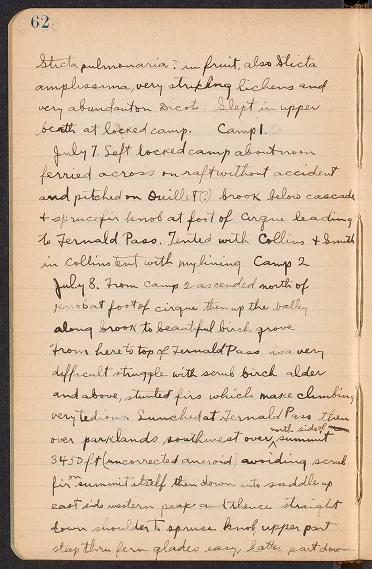 62
Sticta pulmonaria? in fruit, also Sticta
amplissima, very striking lichens and
very abundant on Dicots. Slept in upper
berth at locked camp. Camp 1.
July 7. Left locked camp about noon
ferried across on raft without accident
and pitched on Ouillet(?) brook below cascade
& spruce fir knob at foot of Cirque leading
to Fernald Pass. Tented with Collins & Smith
in Collins tent with my lining Camp 2
July 8. From Camp 2 ascended north of
knob at foot of cirque then up the valley
along brook to beautiful birch grove
From here to top of Fernald Pass is a very
difficult struggle with scrub birch alder
and above, stunted firs which make climbing
very tedious. Lunched at Fernald Pass then
over parklands southwest over north side of summit
3450 ft (uncorrected aneroid) avoiding scrub
fir on summit itself then down into saddle up
east side western peak and thence straight
down shoulder to spruce knob upper part
steep thru fern glades easy, latter part down